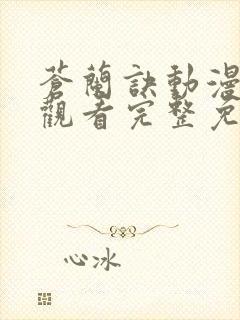 蒼蘭訣動漫
觀看完整免
心冰